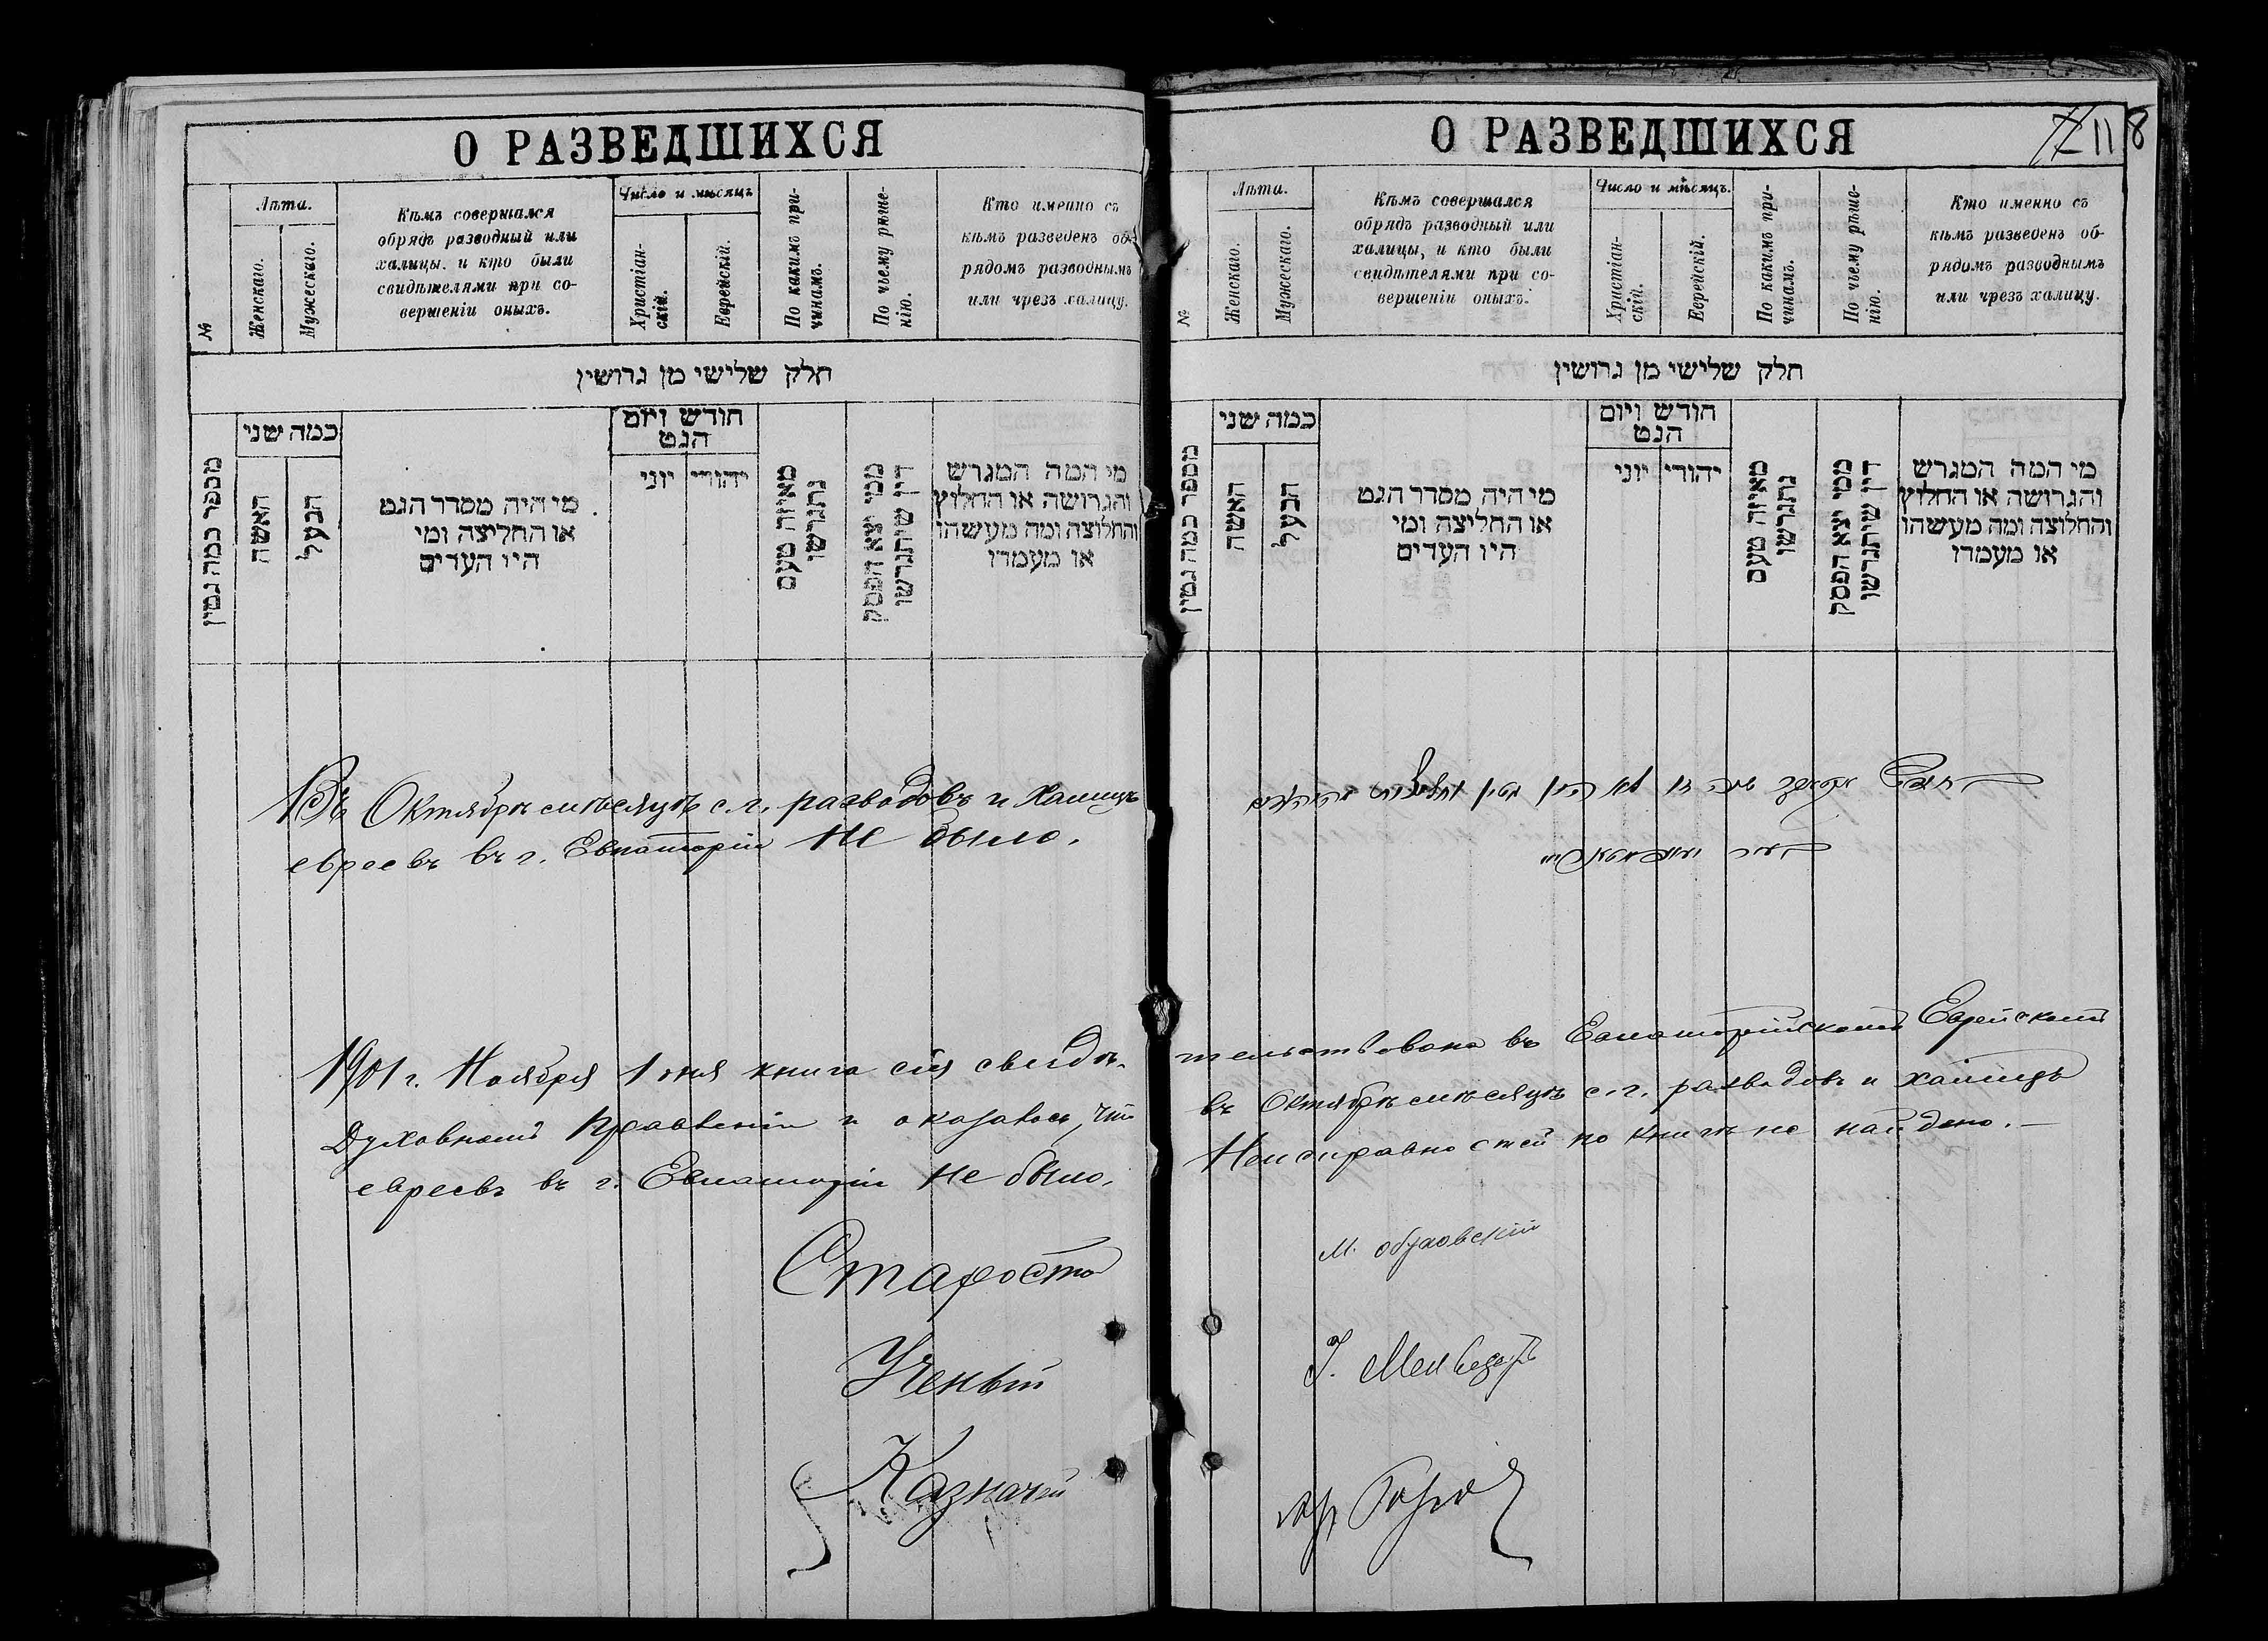 О РАЗВЕДШИХСЯ
№
Лѣта.
Женскаго.
Мужескаго.
Кѣмъ совершался
обрядъ разводный или
халицы. и кто были
свидѣтелями при со-
вершеніи оныхъ.
Число и мѣсяцъ
Христіан-
скій.
Еврейскій.
По какимъ при-
чинамъ.
По чьему рѣше-
нію.
Кто именно съ
кѣмъ разведенъ об-
рядомъ разводнымъ
или чрезъ халицу.
חלק שלישי מן גרושין
מספר כמה גטין
כמה שני
האשה
הבעל
מי היה מסדר הגט
או החליצה ומי
היו העדים
חודש ויום
הגט
יהודי יוני
מאיזה טעם
נתגרשו
ממי יצא הפסק
דין שיתגרשו
מי המה המגרש
והגרושה או החלוץ
והחלוצה ומה מעשהו
או מעמדו
Въ Октябрѣ мѣсяцѣ с. г. разводовъ и Халицъ
евреевъ въ г. Евпаторіи не было.
1901 г. Ноября 1 дня книга сія свидѣ-
Духовномъ Правленіи и оказалось, что
евреевъ въ г. Евпаторіи не было.
Староста
Ученый
Казначей
О РАЗВЕДШИХСЯ
118
№
Лѣта.
Женскаго.
Мужескаго.
Кѣмъ совершался
обрядъ разводный или
халицы, и кто были
свидѣтелями при со-
вершеніи оныхъ.
Число и мѣсяцъ.
Христіан-
скій.
Еврейскій.
По какимъ при-
чинамъ.
По чьему рѣше-
нію.
Кто именно съ
кѣмъ разведенъ об-
рядомъ разводнымъ
или чрезъ халицу.
חלק שלישי מן גרושין
מספר כמה גטין
כמה שני
האשה
הבעל
מי היה מסדר הגט
או החליצה ומי
היו העדים
חודש ויום
הגט
יהודי יוני
מאיזה טעם
נתגרשו
ממי יצא הפסק
דין שיתגרשו
מי המה המגרש
והגרושה או החלוץ
והחלוצה ומה מעשהו
או מעמדו
לא היו גטין
тельствована въ Евпаторійскомъ Еврейскомъ
въ Октябрѣ мѣсяцѣ с. г. разводовъ и халицъ
Неисправностей по книгѣ не найдено. —
М.